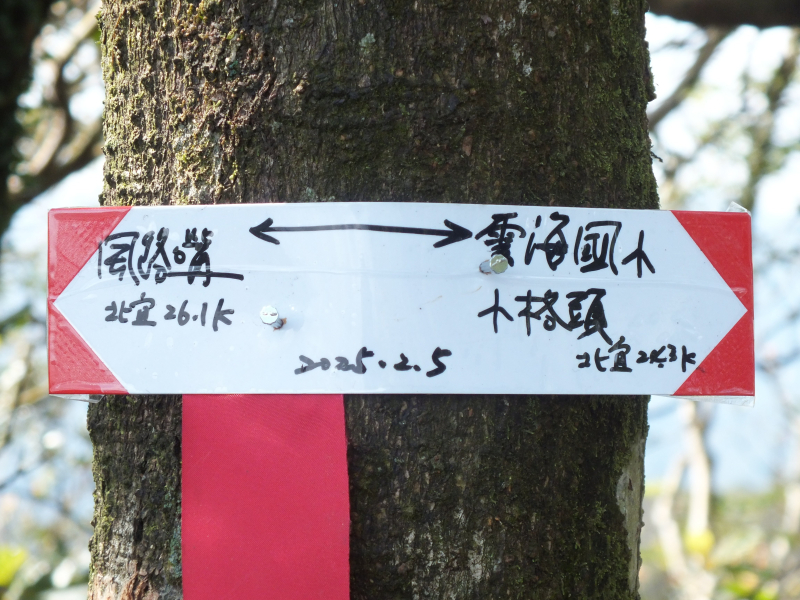 風路嘴
北宜26.1K
雲海國小
小格頭
北宜24.3K
2025.2.5